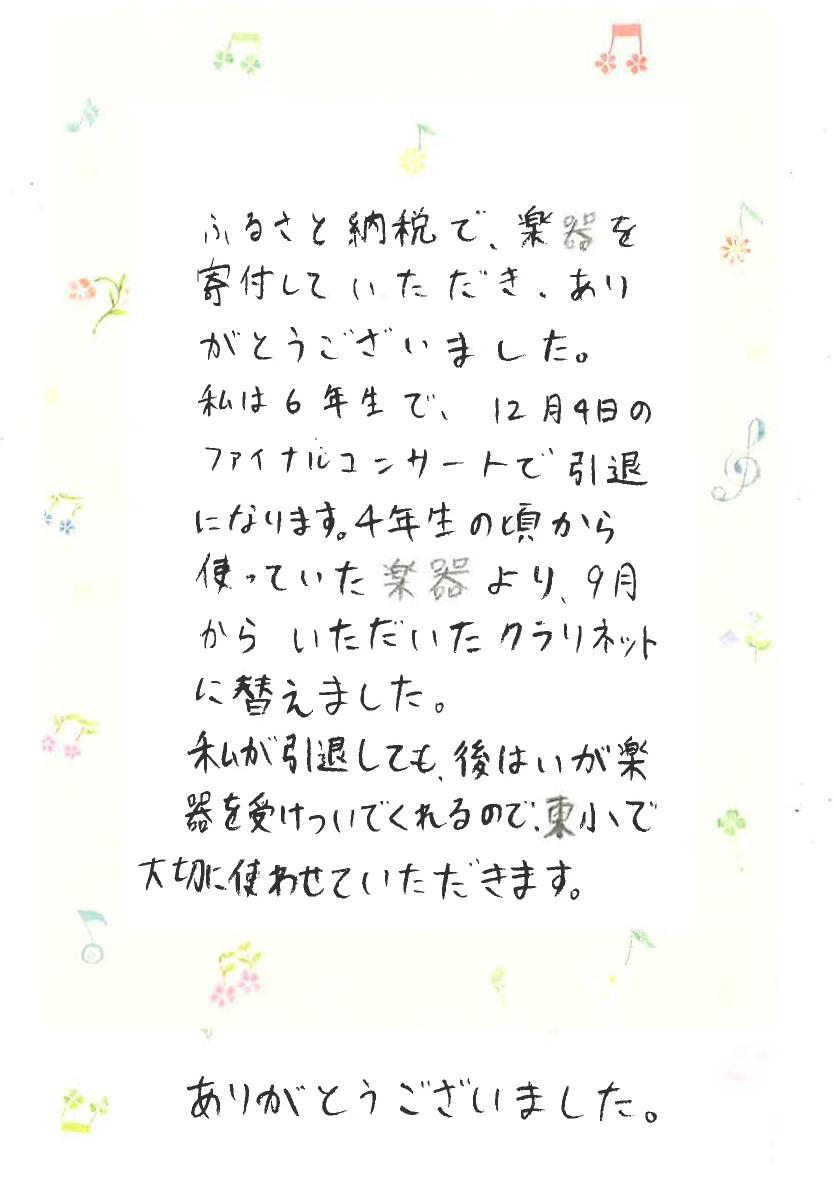 ふるさと納税で、楽器を
寄付していただき、あり
がとうございました。
私は6年生で、12月4日の
ファイナルコンサートで引退
になります。4年生の頃から
使っていた楽器より、9月
からいただいたクラリネット
に替えました。
私が引退しても、後はいが楽
器を受けついでくれるので、東小で
大切に使わせていただきます。
ありがとうございました。